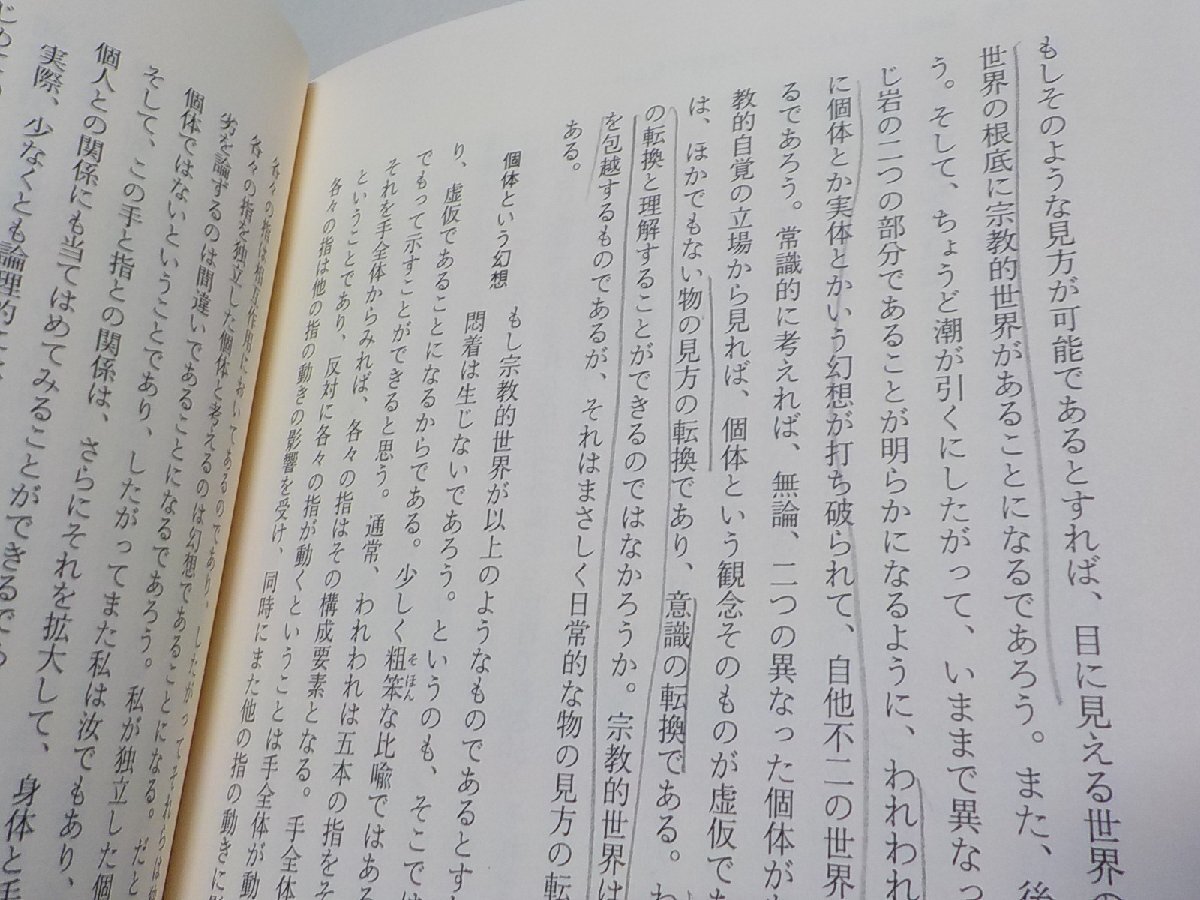 もしそのような見方が可能であるとすれば、目に見える世界の
世界の根底に宗教的世界があることになるであろう。また、後
う。そして、ちょうど潮が引くにしたがって、いままで異なっ
じ岩の二つの部分であることが明らかになるように、われわれ
に個体とか実体とかいう幻想が打ち破られて、自他不二の世界
るであろう。常識的に考えれば、無論、二つの異なった個体が
教的自覚の立場から見れば、個体という観念そのものが虚仮で
は、ほかでもない物の見方の転換であり、意識の転換である。
の転換と理解することができるのではなかろうか。宗教的世界は
を包越するものであるが、それはまさしく日常的な物の見方の転
ある。
個体という幻想 もし宗教的世界が以上のようなものであるとす
悶着は生じないであろう。というのも、そこでは
り、虚仮であることになるからである。少しく粗笨な比喩ではある
そほん
でもって示すことができると思う。通常、われわれは五本の指をそ
それを手全体からみれば、各々の指はその構成要素となる。手全体
ということであり、反対に各々の指が動くということは手全体が動
各々の指は他の指の動きの影響を受け、同時にまた他の指の動きに
各々の指は相互作用においてあるのであり、したがってそれらは
各々の指を独立した個体と考えるのは幻想であることになる。だと
劣を論ずるのは間違いであることになるであろう。私が独立した個
個体ではないということであり、したがってまた私は汝でもあり、
そして、この手と指との関係は、さらにそれを拡大して、身体と手
個人との関係にも当てはめてみることができるであろ
実際、少なくとも論理的には